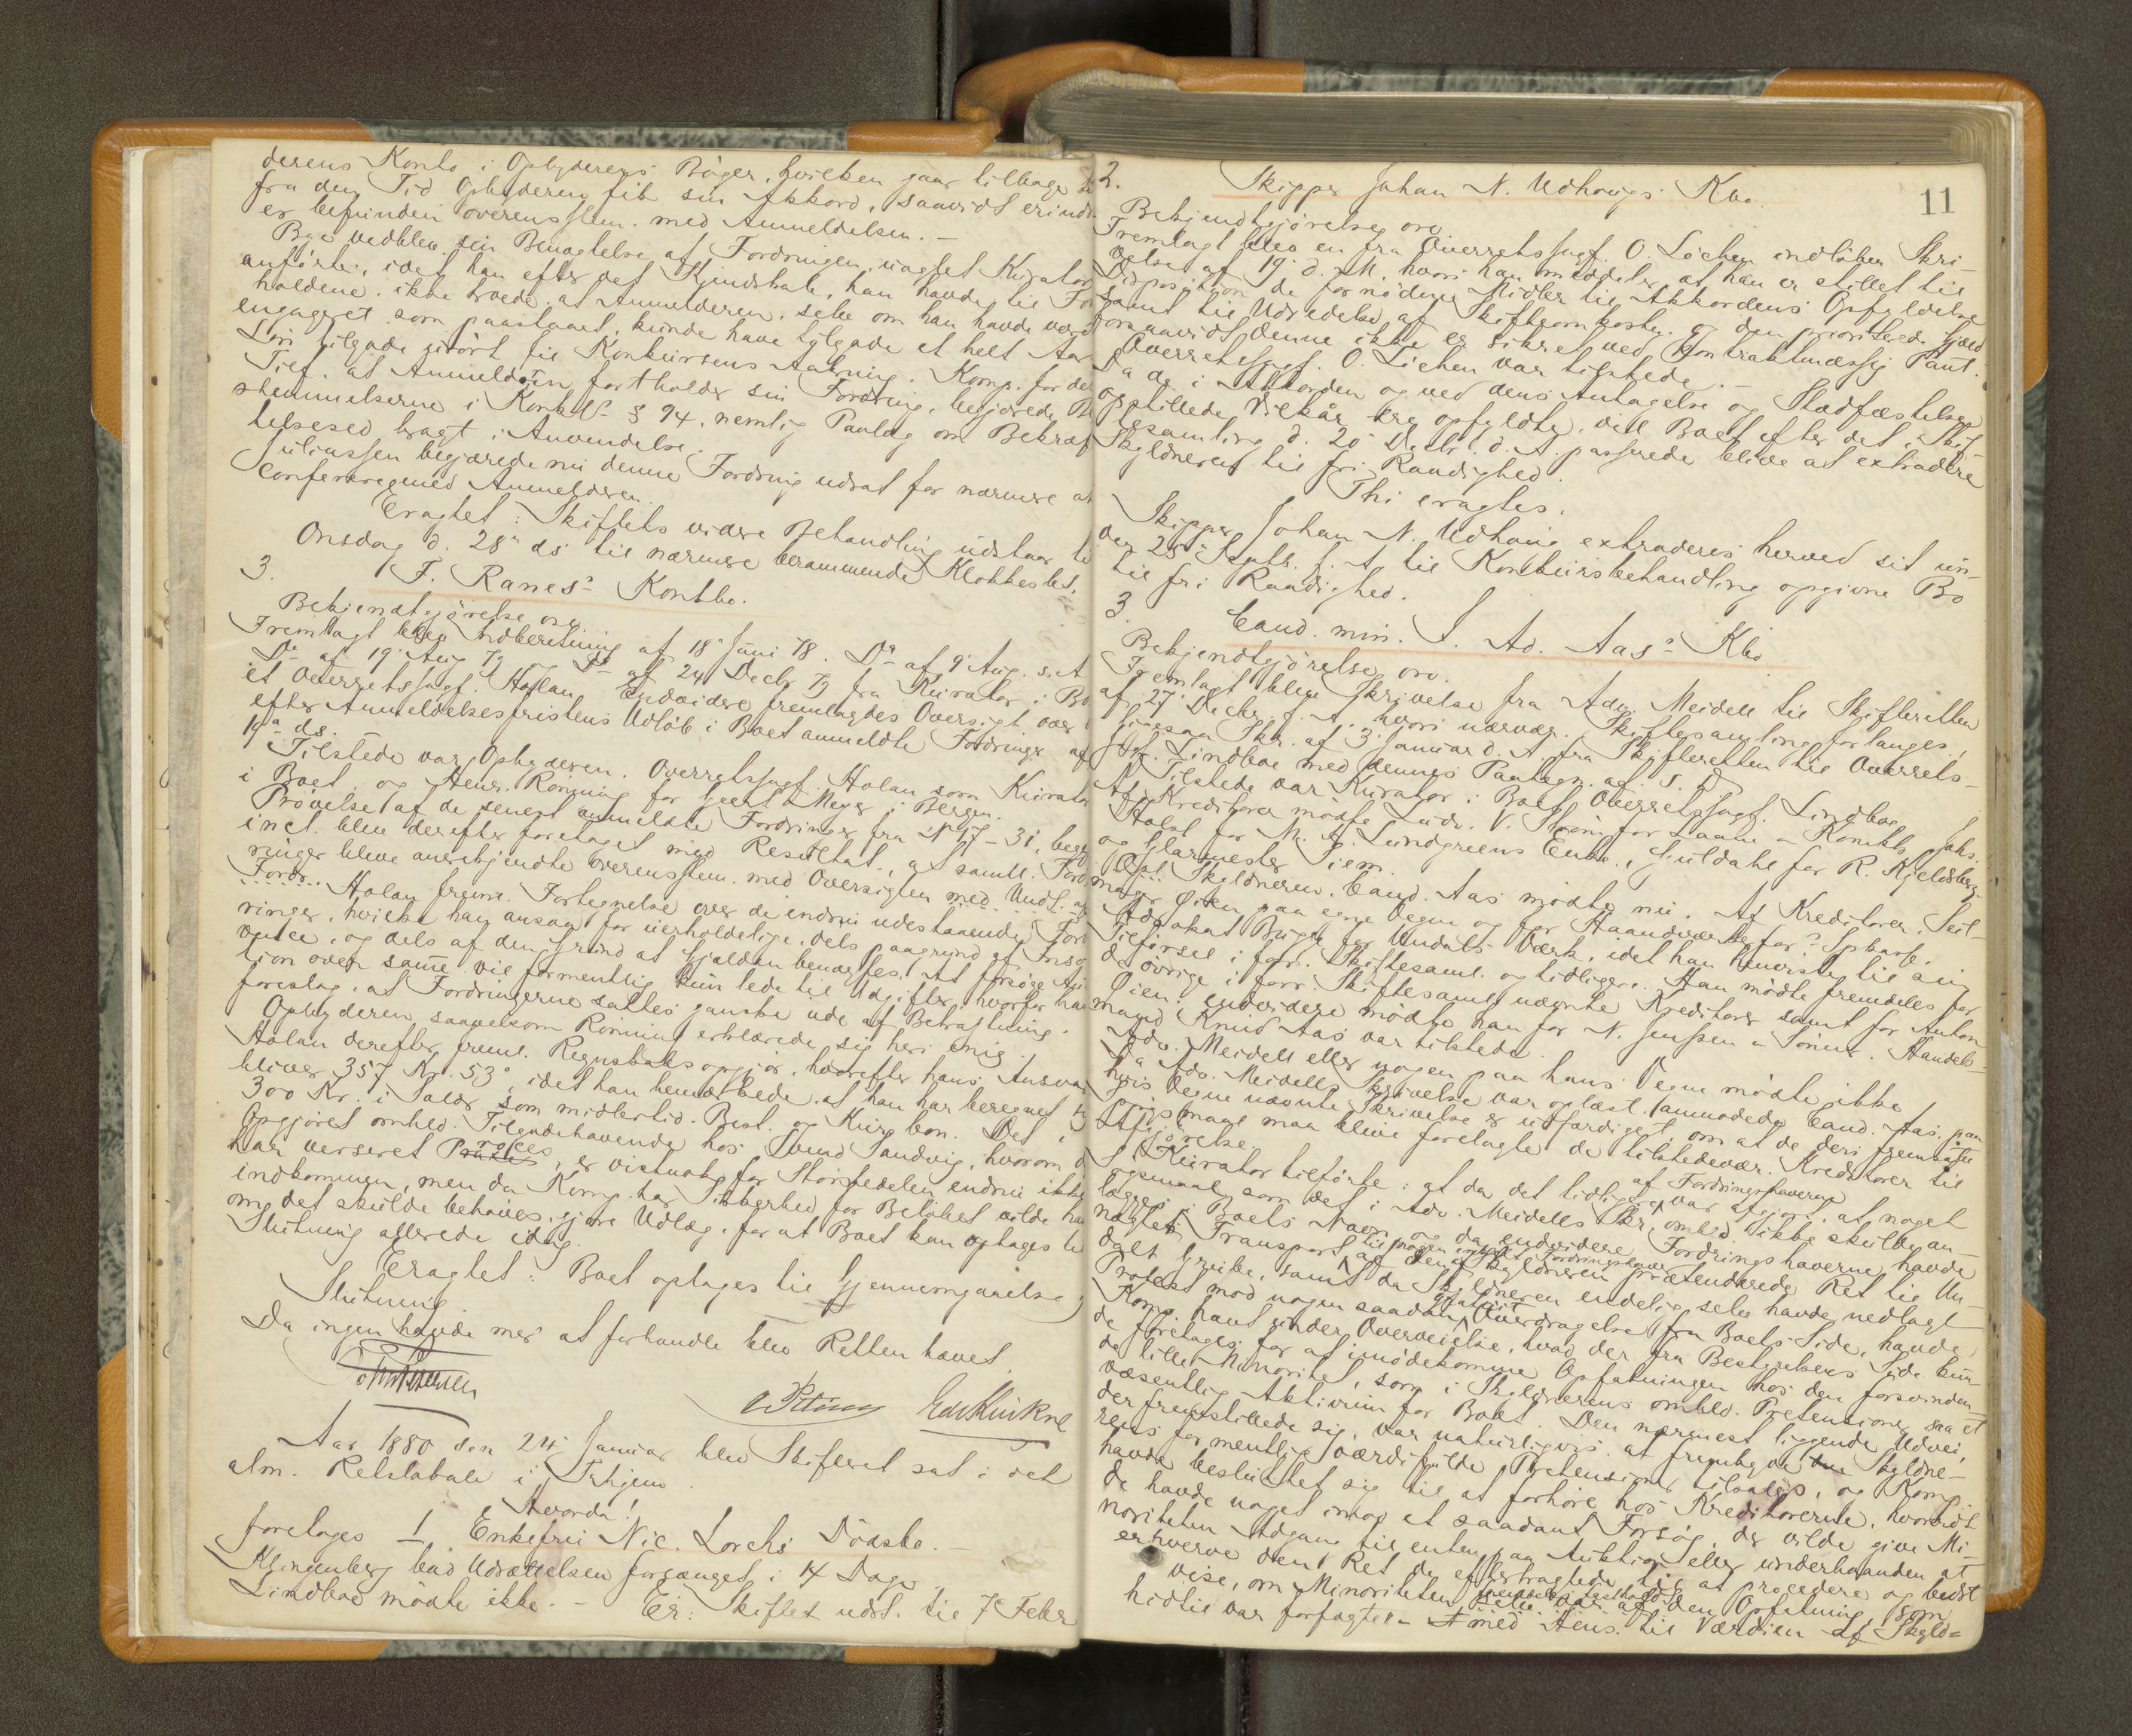 derens Konto i Opbyderens Bøger, hvilken gaar tilbage
fra den Tid Opbyderen fik sin Akkord, saavidt erindr
er befunden overensstem. med Anmeldelsen. –
Bye vedblev sin Benægtelse af Fordringen, uagtet Kurator
anførte, idet han efter det Kjendskab, han havde til For
holdene, ikke troede, at Anmelderen, selv om han havde været
engageret som paastaaet, kunde have tilgode et helt Aar
Løn tilgode uført til Konkursens Aabning. Komp. for det
Tilf. at Anmelderen fortholder sin Fordring, begjærede Be
stemmelserne i Konkl. § 94, nemlig Paalæg om Bekræf
telsesed bragt i Anvendelse.
Juliussen begjærede nu denne Fordring udsat for nærmere at
conferere med Anmelderen.
Eragtet: Skiftets videre Behandling udstaar ti
Onsdag d. 28de ds til nærmere berammende Klokkeslet.
3. F. Ranes' Konkbo.
Bekjendtgjørelse oro.
Fremlagt blev Indberetning af 18de Juni 78. Do af 9 Aug. s. A
Do af 19 Aug 79 Do af 24 Decbr 79 fra Kurator i Bo
et Overretssagf. Holan. Endvidere fremlagdes Oversigt over
efter Anmeldelsesfristens Udløb i Boet anmeldte Fordringer af
19de ds.
Tilstede var Opbyderen. Overretssagf Holan som Kurator
i Boet og Henr. Rönning for Geert Meyer i Bergen.
Prövelse af de senest anmeldte Fordringer fra N 17 – 31, begge
incl. blev derefter foretaget med Resultat, at samtl. Ford
ringer bleve anerkjendte overensstem. med Oversigten med Undt. af
Fordr.
Holan fremt. Fortegnelse over de endnu udestaaende Ford
ringer, hvilke han ansaa for uerholdelige, dels paagrund af Insol
vence, og dels af den Grund at Gjælden benægtes. At forsøge Auk
tion over samme vil formentlig kun lede til Udgifter, hvorfor han
foreslog, at Fordringerne sattes ganske ude af Betragtning.
Opbyderen, saavelsom Rönning erklærede sig heri enig.
Holan derefter fremt. Regnskabsopgjør, hvorefter hans Ansvar
bliver 357 Kr. 53 ø, idet han bemærkede, at han har beregnet sig
300 Kr. i Salær som midlertid. Best. og Kurg bon. Det i
Opgjøret omhld. Tilgodehavende hos Svend Sandvig, hvorom der
har verseret Proces, er vistnok for Störstedelen endnu ikke
indkommen, men da Komp. har Sikkerhed for Beløbet vilde han
om det skulde behøves, gjøre Udlæg, for at Boet kan optages til
Slutning allerede idag.
Eragtet: Boet optages til Gjennemgaaelse
Slutning.
Da ingen havde mer at forhandle blev Retten hævet.
Aar 1880 den 24 Januar blev Skifteret sat i det
alm. Retslokale i Trhjem
Hvorda!
foretoges 1 Enkefru Nic. Lorchs Dödsbo. –
Klingenberg bad Udsættelsen forlænget i 14 Dage
Lindboe mødte ikke. – Er: Skiftet uds. til 7de Febr
11
2. Skipper Johan N. Udhaugs Kbo.
Bekjendtgjörelse oro
Fremlagt blev en fra Overretssagf. O. Löchen indløben Skri-
velse af 19 d. M. hvori han meddeler, at han er stillet til
Disposition de fornødne Midler til Akkordens Opfyldelse
samt til Udredelse af Skifteomkostn. og den prioriterede Gjæld
forsaavidt denne ikke er sikret ved kontraktmæssig Pant.
Overretssagf. O. Löchen var tilstede. –
Da de i Akkorden og ved dens Antagelse og Stadfæstelse
opstillede Vilkår ere opfyldte, vil Boet efter det i Skif-
tesamling d. 20 Decbr. f. A. passerede blive at extradere
Skyldneren til fri Raadighed.
Thi eragtes.
Skipper Johan N. Udhaug extraderes herved sit un-
der 25de Septb. f. A til Konkursbehandling opgivne Bo
til fri Raadighed.
3. Cand. min. S. Ad. Aas' Kbo
Bekjendtgjörelse oro.
Fremlagt blev Skrivelse fra Adv. Meidell til Skifteretten
af 27 Decbr. f. A. hvori nærvær. Skiftesamling forlanges,
ligesaa Skr. af 3 Januar d. A fra Skifteretten til Overrets-
sagf. Lindboe med dennes Paategn. af S. D.
Tilstede var Kurator i Boet Overretssagf. Lindboe
Af Kreditorer mødte Ludv. V. Ström for Laane- & Kombk, Jakr.
Holst for M. H. Lundgreens Enke, Guldahl for R. Kjeldsberg
og Glarmester Siem
Opl. Skyldneren. Cand. Aas mødte nu. Af Kreditorer: Seil-
mager Öien paa egne Vegne og for Haandværkerfor. Spbank.
Advokat Bugge for Undals Værk, idet han henviste til sin
Tilførsel i forr. Skiftesaml. og tidligere. Han mødte fremdeles for
de övrige i forr. Skiftesaml. nævnte Kreditorer samt for Anton
Öien; endvidere mødte han for N. Jenssen & Sönner. Handels-
mand Knud Aas var tilstede.
Adv. Meidell eller nogen paa hans Vegne mødte ikke
Da Adv. Meidells Skrivelse var oplæst, anmodede Cand. Aas, paa
hvis Vegne nævnte Skrivelse er udfærdiget, om at de deri fremsatte
Spörgsmaal maa blive forelagte de tilstedevær. Kreditorer til
Afgjörelse.
Kurator tilførte: at da det tidligere af Fordringshaverne var afgjort, at noget
Søgsmaal, som det i Adv. Meidells Skr. omhld. ikke skulde an-
lægges i Boets Navn, og da endvidere Fordringshaverne havde
nægtet Transport til nogen enkelt Fordringshaver af den af Skyldneren prætenderede Ret til Un-
dals Grube, samt da Skyldneren endelig selv havde nedlagt
Protest mod nogen saadan Overdragelse fra Boets Side, havde
Komp. havt under Overveielse, hvad der fra Bestyrelsens Side kun-
de foretages for at imødekomme Opfatningen hos den forsvinden-
de lille Minoritet, som i Skyldnerens omhld. Pretensioner saa et
væsentlig Aktivum for Boet. Den nærmest liggende Udvei,
der fremstillede sig, var naturligvis at frembyde Skyldne-
rens formentlig værdifulde Pretensioner tilsalgs, og Komp.
havde besluttet sig til at forhøre hos Kreditorerne, hvorvidt
de havde noget imod et saadant Forsøg, der vilde give Mi-
noriteten Adgang til enten paa Auktion eller underhaanden at
erhverve den Ret de eftertragtede til at procedere og bedst
vise, om Minoriteten selv var af den Opfatning, som
hidtil var forfægtet – med Hens. til Værdien af Skyld=